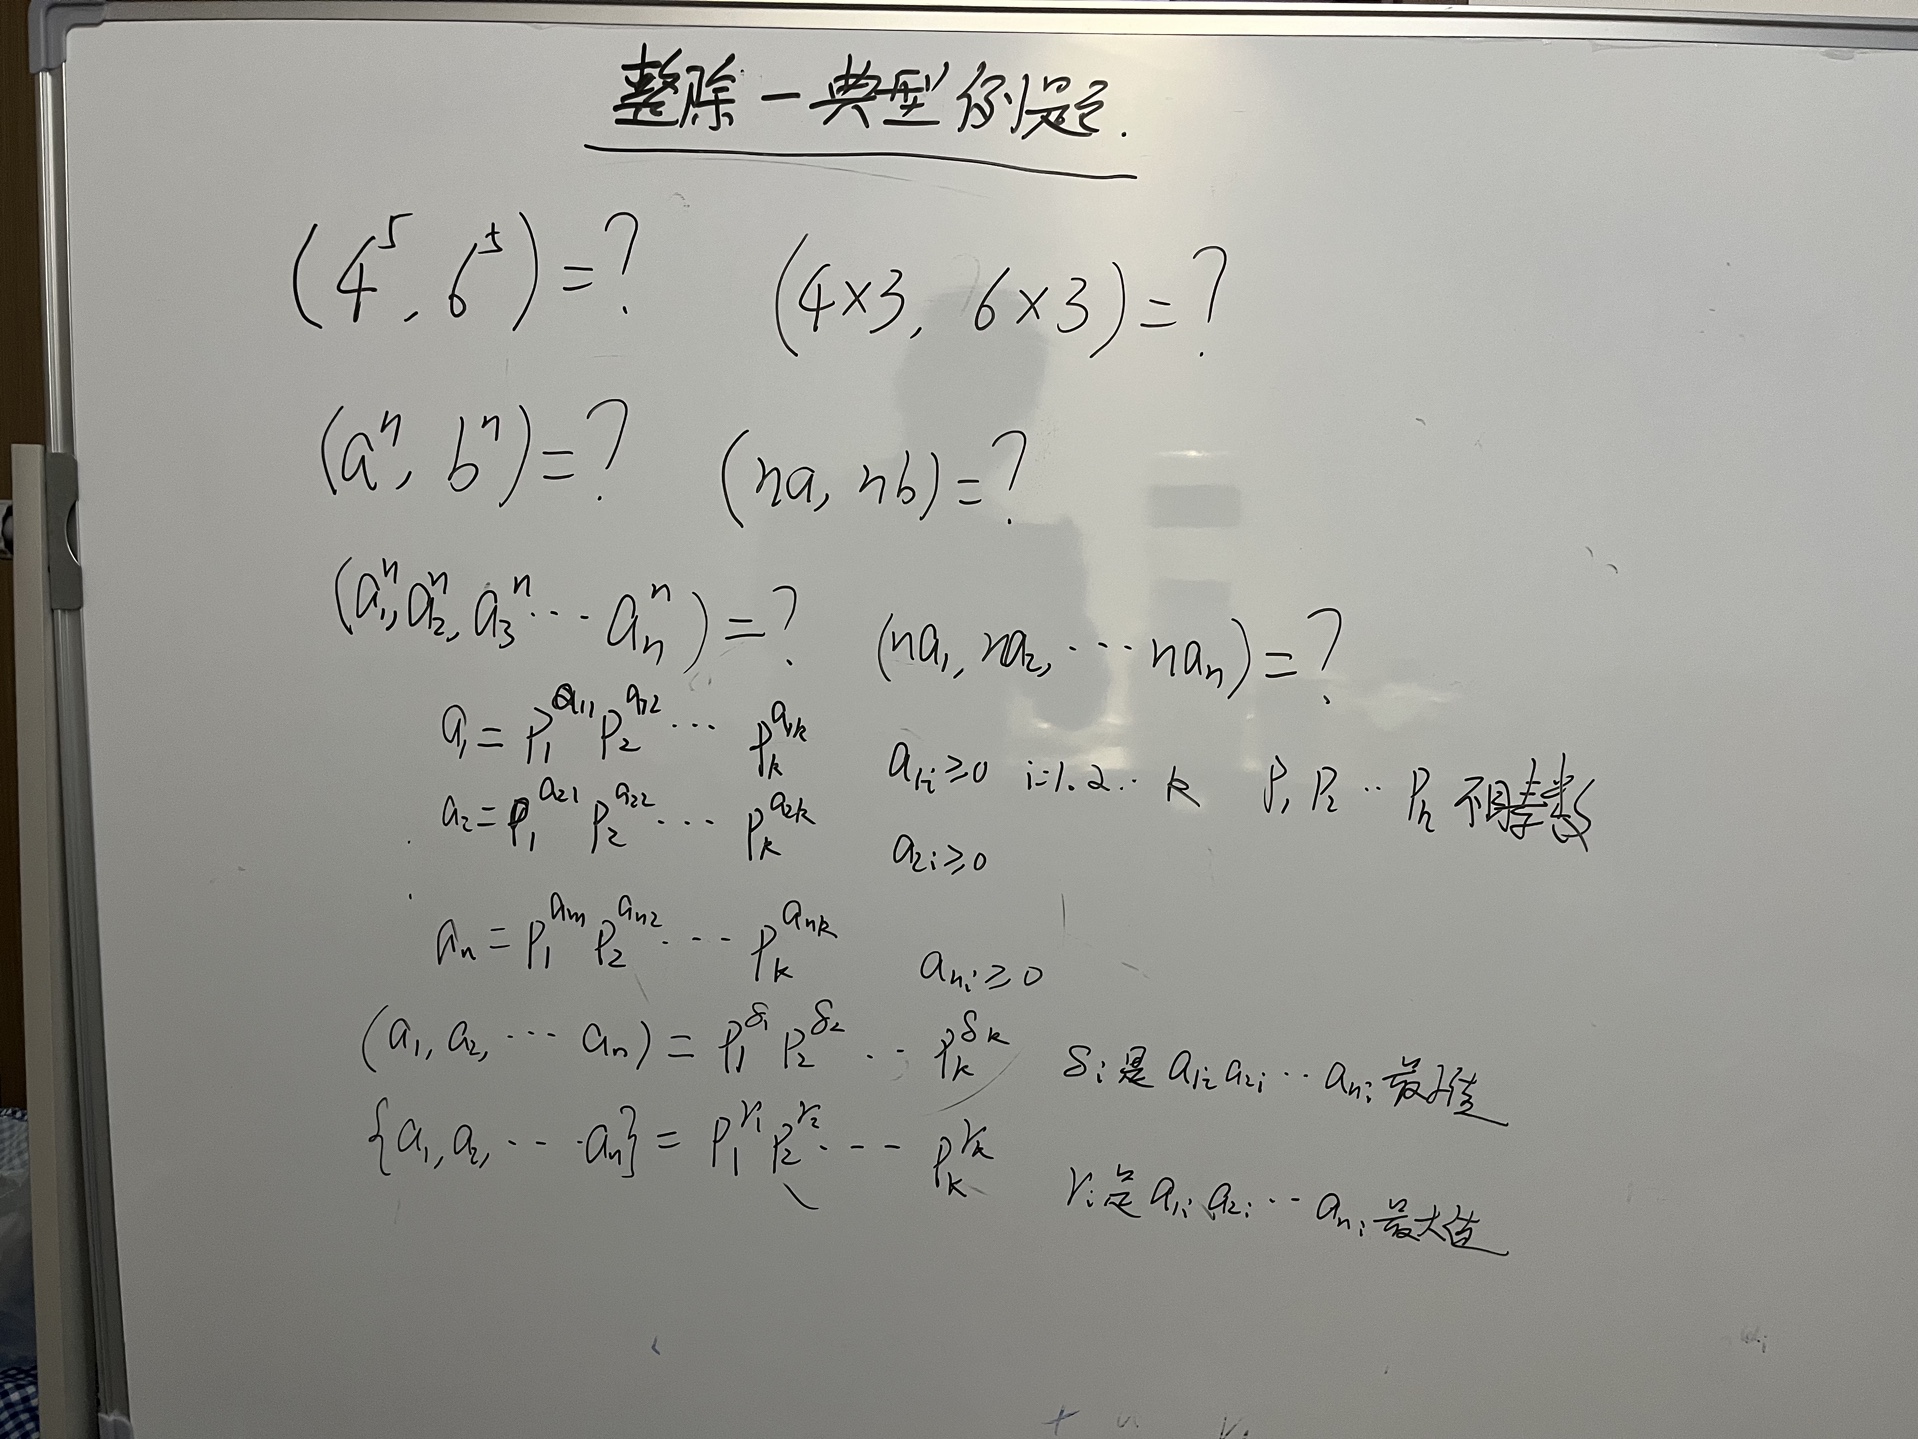 整除-典型例题.
(4⁵, 6⁵)=? (4×3, 6×3)=?
(aⁿ, bⁿ)=? (na, nb)=?
(a₁ⁿ, a₂ⁿ, a₃ⁿ ··· aₙⁿ)=? (na₁, na₂, ··· naₙ)=?
a₁ = P₁^{a₁₁} P₂^{a₁₂} ··· P_k^{a_{1k}} a_{1i}≥0 i=1.2.. k P₁ P₂ ·· Pₙ 不同素数
a₂ = P₁^{a₂₁} P₂^{a₂₂} ··· P_k^{a_{2k}} a_{2i}≥0
aₙ = P₁^{a_{n1}} P₂^{a_{n2}} ··· P_k^{a_{nk}} a_{ni}≥0
(a₁, a₂, ··· aₙ) = P₁^{δ₁} P₂^{δ₂} ·· P_k^{δ_k} δᵢ是 a_{1i} a_{2i} ·· a_{ni} 最小值
{a₁, a₂, ··· aₙ} = P₁^{γ₁} P₂^{γ₂} ··· P_k^{γ_k} γᵢ是 a_{1i} a_{2i} ··· a_{ni} 最大值